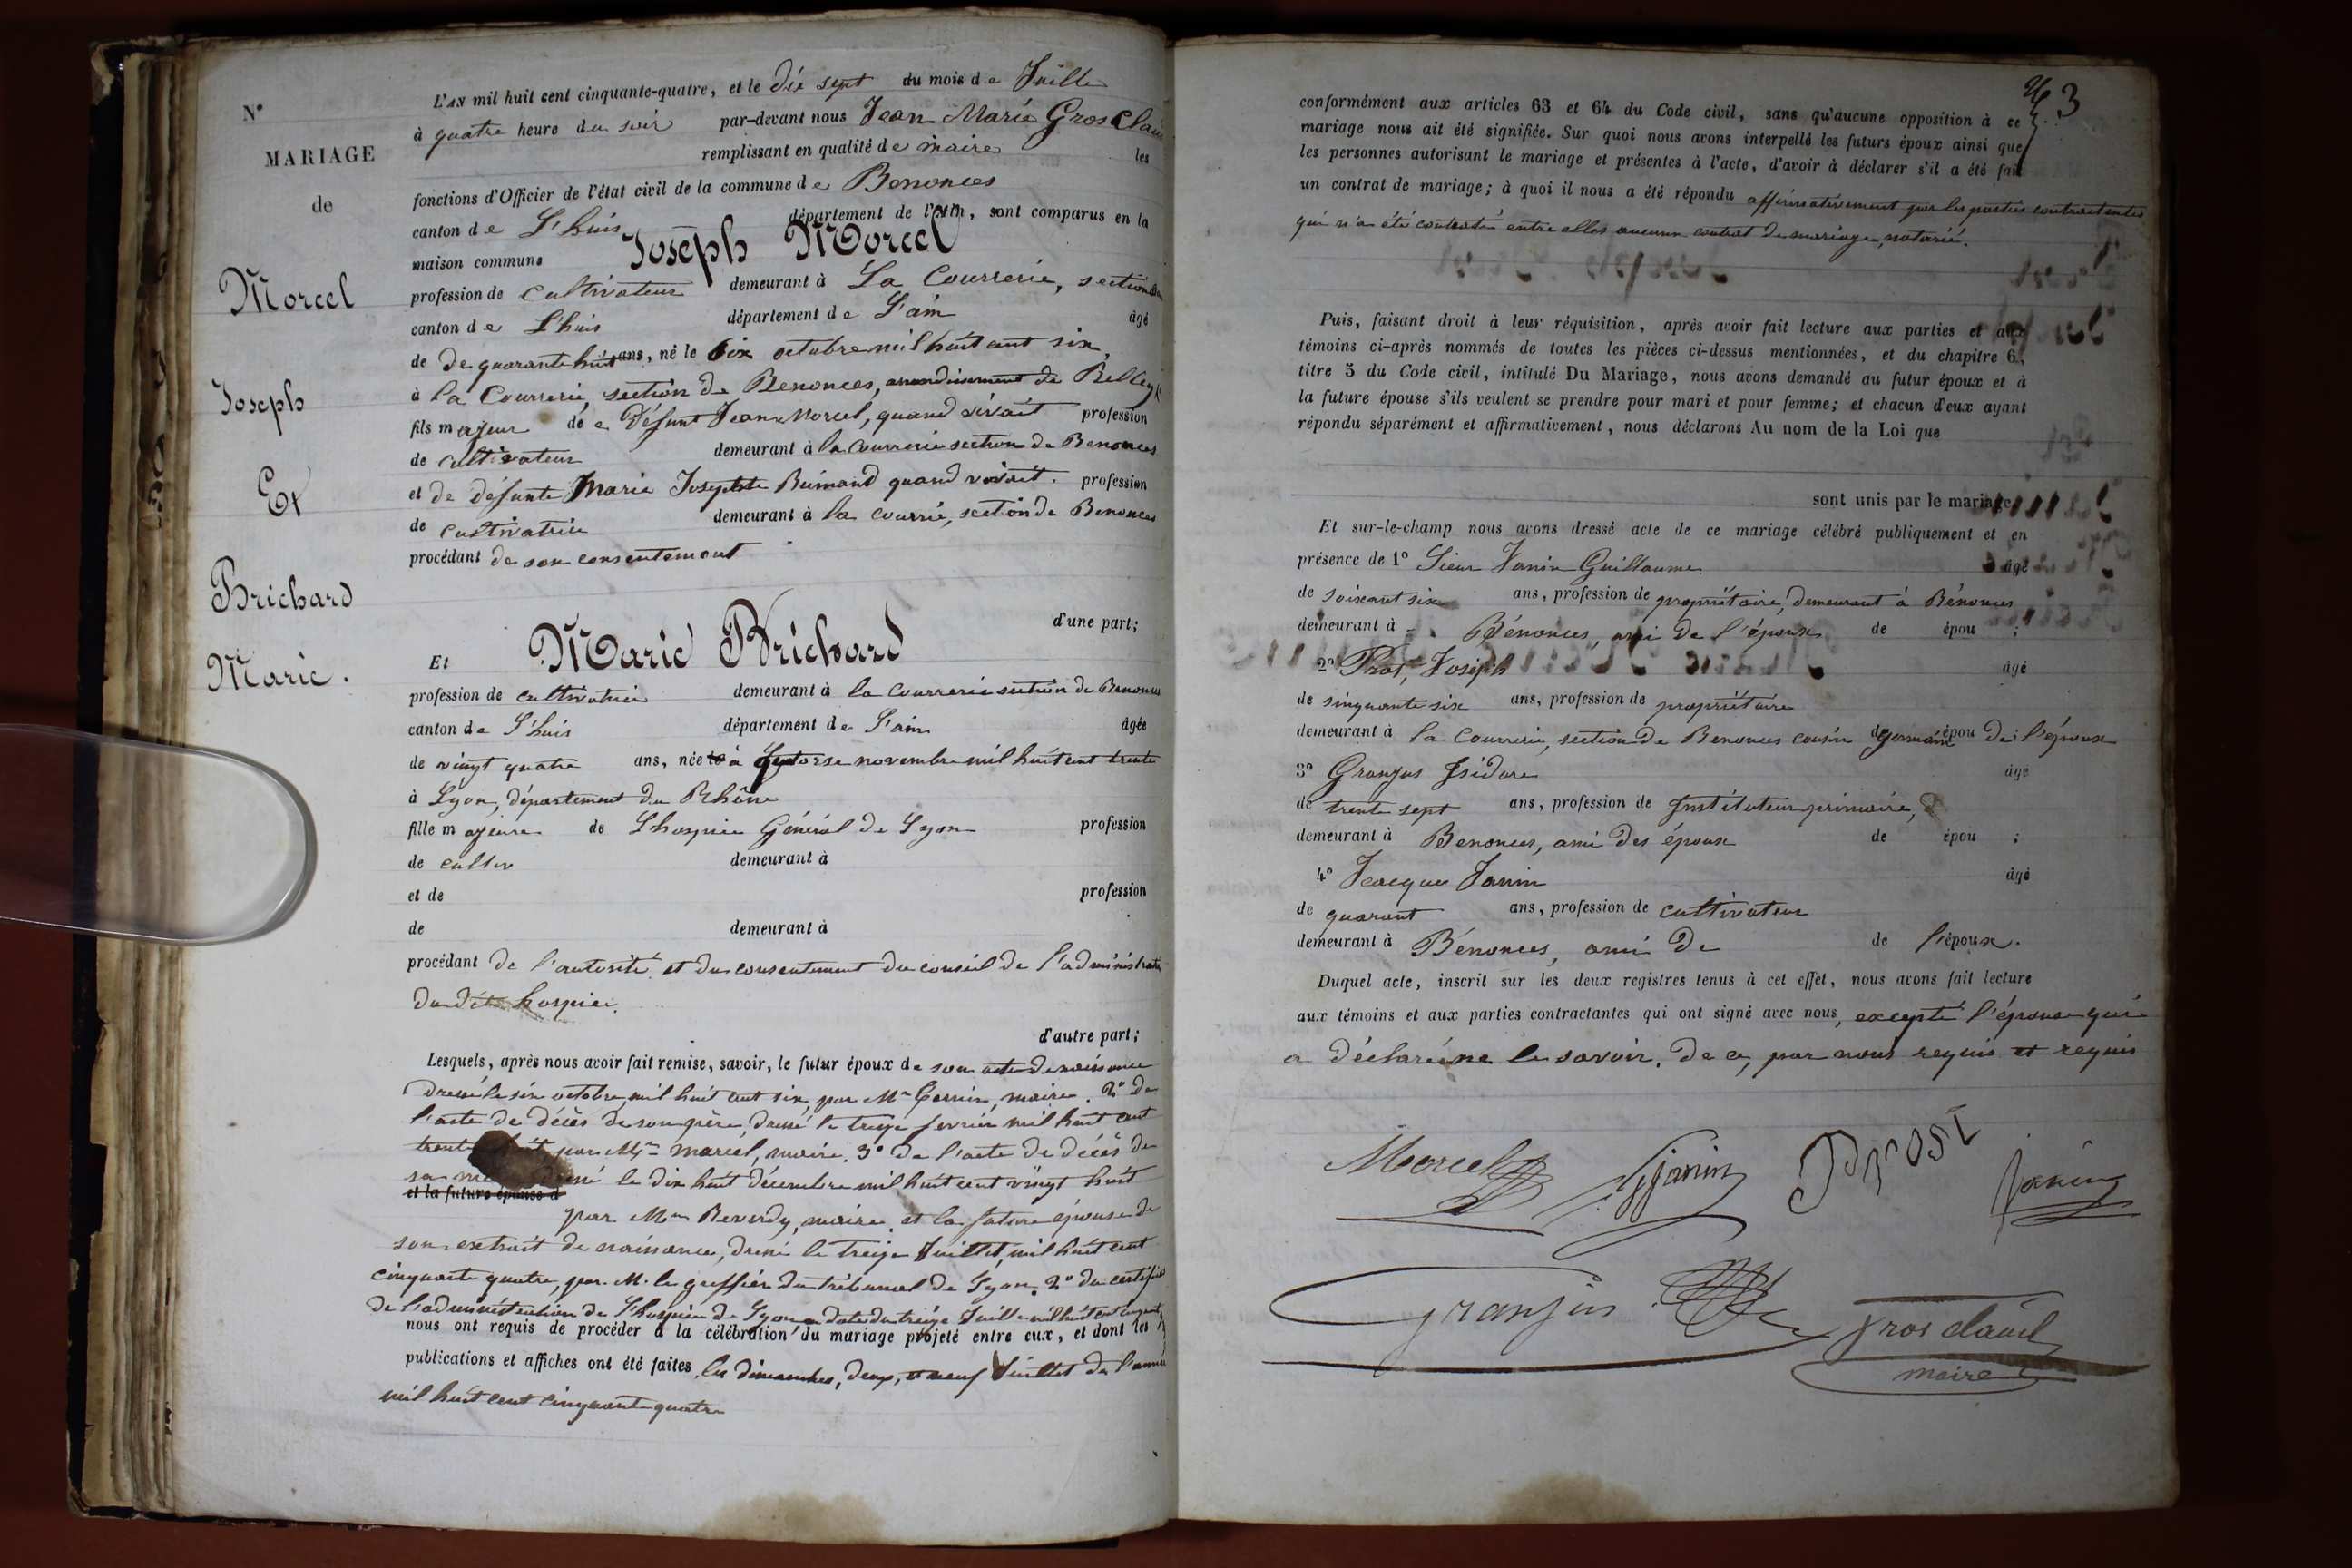 N°
MARIAGE
de
Morcel
Joseph
Et
Brichard
Marie.
L'AN mil huit cent cinquante-quatre, et le dix sept du mois de Juillet
à quatre heure du soir par-devant nous Jean Marie Grosclaude
remplissant en qualité de maire les
fonctions d'Officier de l'état civil de la commune de Benonces
canton de L'huis département de l'Ain, sont comparus en la
maison commune Joseph Morcel
profession de cultivateur demeurant à La Courrerie, section
canton de L'huis département de L'ain âgé
de De quarante huit ans, né le six octobre mil huit cent six,
à la Courrerie, section de Benonces, arrondissement de Belley
fils majeur de Défunt Jean Morcel, quand vivait profession
de cultivateur demeurant à la Courrerie section de Benonces
et de défunte Marie Josephte Buinand quand vivait. profession
de cultivatrice demeurant à la courrie, section de Benonces
procédant de son consentement
d'une part;
Et Marie Brichard
profession de cultivatrice demeurant à la Courrerie section de Benonces
canton de L'huis département de L'ain âgée
de vingt quatre ans, née le à quatorse novembre mil huit cent trente
à Lyon, département du Rhône
fille majeure de L'hospice Général de Lyon profession
de cultiv demeurant à
et de profession
de demeurant à
procédant de l'autorité et du consentement du conseil de l'administration
du dit hospice.
d'autre part;
Lesquels, après nous avoir fait remise, savoir, le futur époux de son acte de naissance
Dressé le six octobre mil huit cent six, par Mr maire. 2° de
l'acte de décès de son père, dressé le treize fevrier mil huit cent
trente par Mr marcel, maire. 3° de l'acte de décès de
sa dressé le dix huit décembre mil huit cent vingt huit
et la future épouse d
par Mr Reverdy, maire, et la future épouse de
son extrait de naissance, dressé le treize Juillet, mil huit cent
cinquante quatre, par M. le greffier du tribunal de Lyon. 2° du certificat
de l'administration de L'hospice de Lyon en date du treize Juillet mil huit cent cinquante
nous ont requis de procéder à la célébration du mariage projeté entre eux, et dont les
publications et affiches ont été faites les dimanches, deux, et neuf Juillet de l'année
mil huit cent cinquante quatre
3
conformément aux articles 63 et 64 du Code civil, sans qu'aucune opposition à ce
mariage nous ait été signifiée. Sur quoi nous avons interpellé les futurs époux ainsi que
les personnes autorisant le mariage et présentes à l'acte, d'avoir à déclarer s'il a été fait
un contrat de mariage; à quoi il nous a été répondu affirmativement par les parties contractantes
qui n'a été contracté entre elles aucun contrat de mariage, notarié.
Puis, faisant droit à leur réquisition, après avoir fait lecture aux parties et aux
témoins ci-après nommés de toutes les pièces ci-dessus mentionnées, et du chapitre 6,
titre 5 du Code civil, intitulé Du Mariage, nous avons demandé au futur époux et à
la future épouse s'ils veulent se prendre pour mari et pour femme; et chacun d'eux ayant
répondu séparément et affirmativement, nous déclarons Au nom de la Loi que
sont unis par le mariage.
Et sur-le-champ nous avons dressé acte de ce mariage célébré publiquement et en
présence de 1° Sieur Janin Guillaume âgé
de soixant six ans, profession de propriétaire, demeurant à Bénonces
demeurant à Bénonces, ami de l'époux de épou ;
2° Prost, Joseph âgé
de sinquante six ans, profession de propriétaire
demeurant à la Courrerie, section de Benonces cousin germain de épou de l'époux
3° Granjus Isidore âgé
de trente sept ans, profession de Instituteur primaire,
demeurant à Benonces, ami des époux de épou ;
4° Jeacques Janin âgé
de quarant ans, profession de cultivateur
demeurant à Bénonces, ami de de l'époux.
Duquel acte, inscrit sur les deux registres tenus à cet effet, nous avons fait lecture
aux témoins et aux parties contractantes qui ont signé avec nous, excepté l'épouse qui
a déclaré ne le savoir. De ce, par nous requis et requis
Morcel Gjanin Prost Janin
Granjus Grosclaud
maire